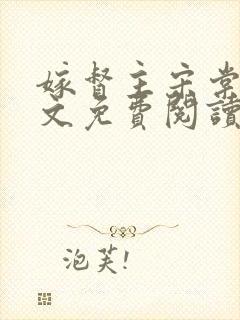 嫁督主宋棠
文免費閱讀
泡芙!